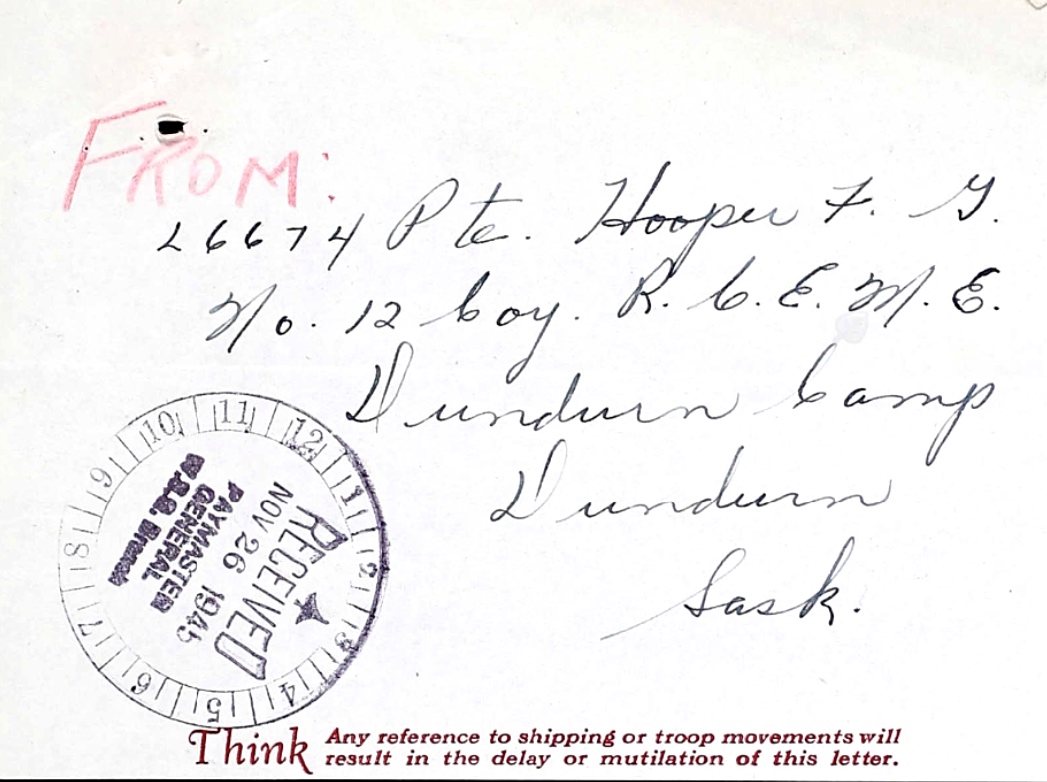 FROM:
L6674 Pte. Hooper F. G.
No. 12 Coy. R. C. E. M. E.
Dundurn Camp
Dundurn
Sask.
10 11 12 1 2 3 4 5 6 7 8 9
RECEIVED
NOV 26 1945
PAYMASTER
GENERAL
Branch
Think Any reference to shipping or troop movements will
result in the delay or mutilation of this letter.